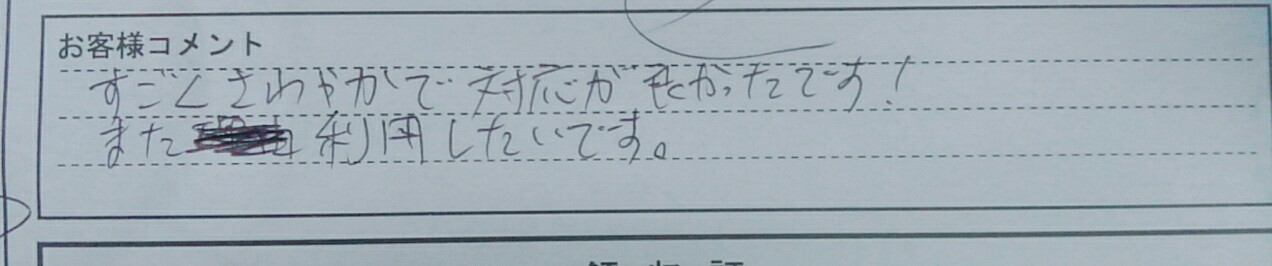 お客様コメント
すごくさわやかで対応が良かったです!
また利用したいです。